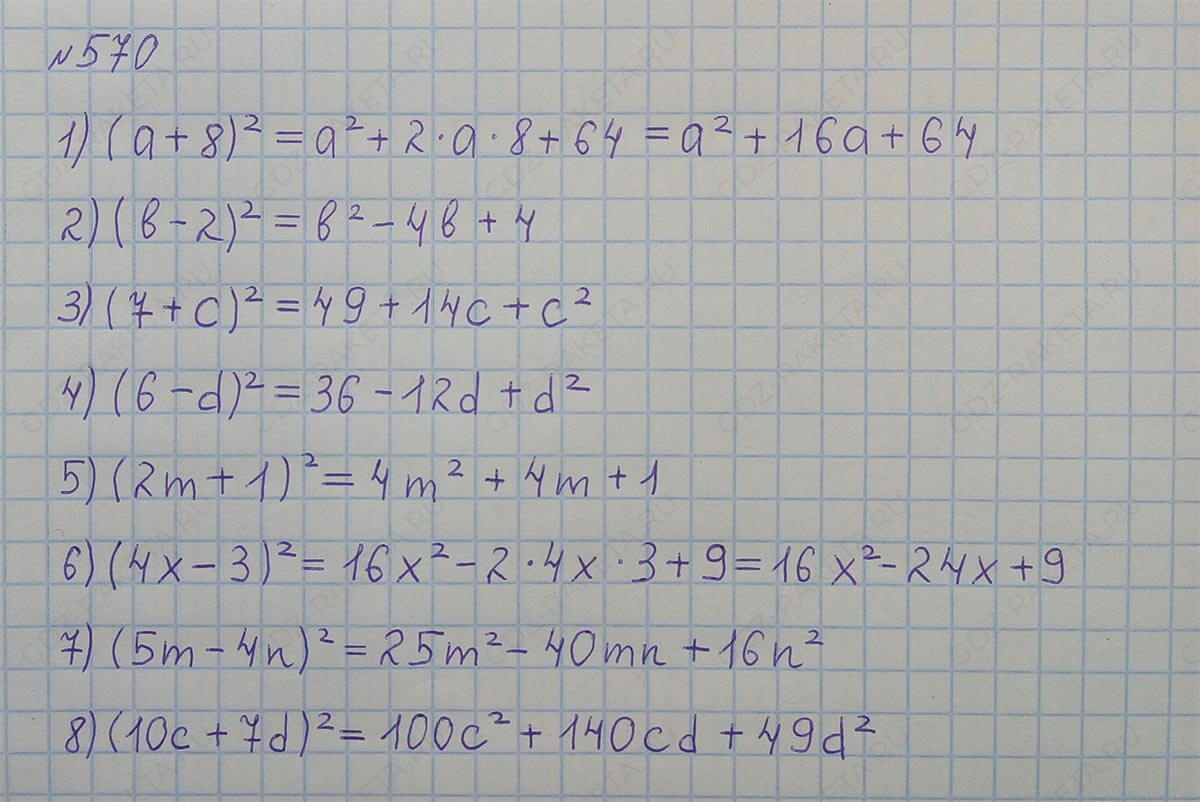 №570
1) (a+8)² = a² + 2·a·8 + 64 = a² + 16a + 64
2) (в-2)² = в² - 4в + 4
3) (7+c)² = 49 + 14c + c²
4) (6-d)² = 36 - 12d + d²
5) (2m+1)² = 4m² + 4m + 1
6) (4x-3)² = 16x² - 2·4x·3 + 9 = 16x² - 24x + 9
7) (5m-4n)² = 25m² - 40mn + 16n²
8) (10c+7d)² = 100c² + 140cd + 49d²
GDZ-RAKETA.RU